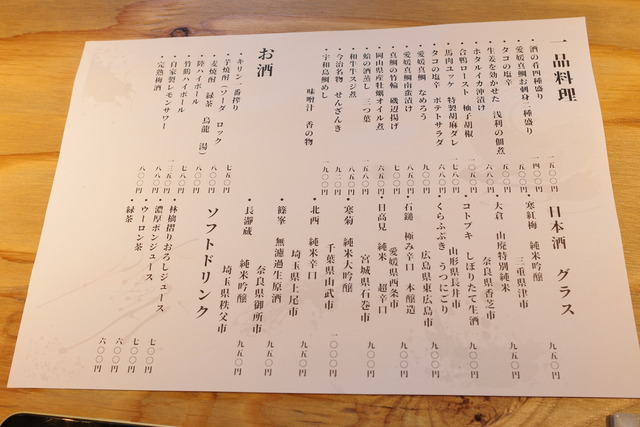 一品料理
・酒の肴四種盛り 一五〇〇円
・愛媛真鯛お刺身二種盛り 一四〇〇円
・タコの塩辛 五〇〇円
・生姜を効かせた 浅利の佃煮 五〇〇円
・ホタルイカ沖漬け 六八〇円
・合鴨ロースト 柚子胡椒
・馬肉ユッケ 特製胡麻ダレ 一七八〇円
・タコの塩辛 ポテトサラダ 六八〇円
・愛媛真鯛 なめろう 九〇〇円
・愛媛真鯛南蛮漬け 八五〇円
・真鯛の竹輪 磯辺揚げ 七〇〇円
・岡山県産牡蠣オイル煮 六五〇円
・蛤の酒蒸し 三つ葉 一五八〇円
・和牛牛スジ煮 八五〇円
・今治名物 せんざんき 九二〇円
・宇和島鯛めし
味噌汁 香の物 一九〇〇円
お酒
・キリン一番搾り 七五〇円
・芋焼酎(ソーダ ロック
・麦焼酎 緑茶 烏龍 湯) 八〇〇円
・陸ハイボール 七八〇円
・竹鶴ハイボール 一三五〇円
・自家製レモンサワー 八八〇円
・完熟梅酒 八〇〇円
日本酒 グラス
・寒紅梅 純米吟醸
三重県津市 九五〇円
・大倉 山廃特別純米
奈良県香芝市 九〇〇円
・コトブキ しぼりたて生酒
山形県長井市 九五〇円
・くらふぶき うつにごり
広島県東広島市 九〇〇円
・石鎚 極み辛口 本醸造
愛媛県西条市 九〇〇円
・日高見 純米 超辛口
宮城県石巻市 九〇〇円
・寒菊 純米大吟醸
千葉県山武市 一〇〇〇円
・北西 純米辛口
埼玉県上尾市 九〇〇円
・篠峯 無濾過生原酒
奈良県御所市 九五〇円
・長瀞蔵 純米吟醸
埼玉県秩父市 九五〇円
ソフトドリンク
・林檎摺りおろしジュース 七〇〇円
・濃厚ポンジュース 七〇〇円
・ウーロン茶 六〇〇円
・緑茶 六〇〇円